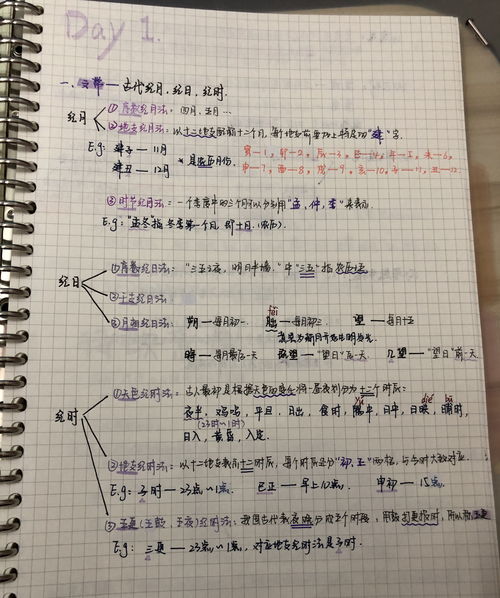 Day 1.
一、文学——古代纪月,纪日,纪时.
纪月
①序数纪月法:四月、五月…
②地支纪月法:以十二地支配称十二个月,每个地支前要加上特定的"建"字.
E.g:建子—11月
建丑—12月
*是农历月份.
寅-1,卯-2,辰-3,巳-4,午-5,未-6,
申-7,酉-8,戌-9,亥-10,子-11,丑-12.
③时节纪月法:一个季度中的三个月可以分别用"孟,仲,季"来表示
E.g:"孟冬"指冬季第一个月,即十月.(农历).
纪日
①序数纪日法:"三五之夜,明月半墙."中"三五"指农历十五
②干支纪日法:
③月相纪日法:朔—每月初一. 朏—每月初三. 望—每月十五
fěi
晦—每月最后一天 既望—"望日"后一天. 几望—"望日"前一天.
纪时
①天色纪时法:古人最初是根据天色的变化将一昼夜划分为十二个时辰:
夜半,鸡鸣,平旦,日出,食时,隅中,日中,日昳,晡时,
(23时~1时) yú dié bū
日入,黄昏,人定.
②地支纪时法:以十二地支表示十二时辰,每个时辰还分"初、正"两个,与今时大致对应.
E.g:子时—23点~1点. 巳正—早上10点. 申初—15点.
③五更(五鼓、五夜)纪时法:我国古代把夜晚分成五个时段,用鼓打更报时,所以称五更
E.g:三更—23点~1点,对应地支纪时法是子时.